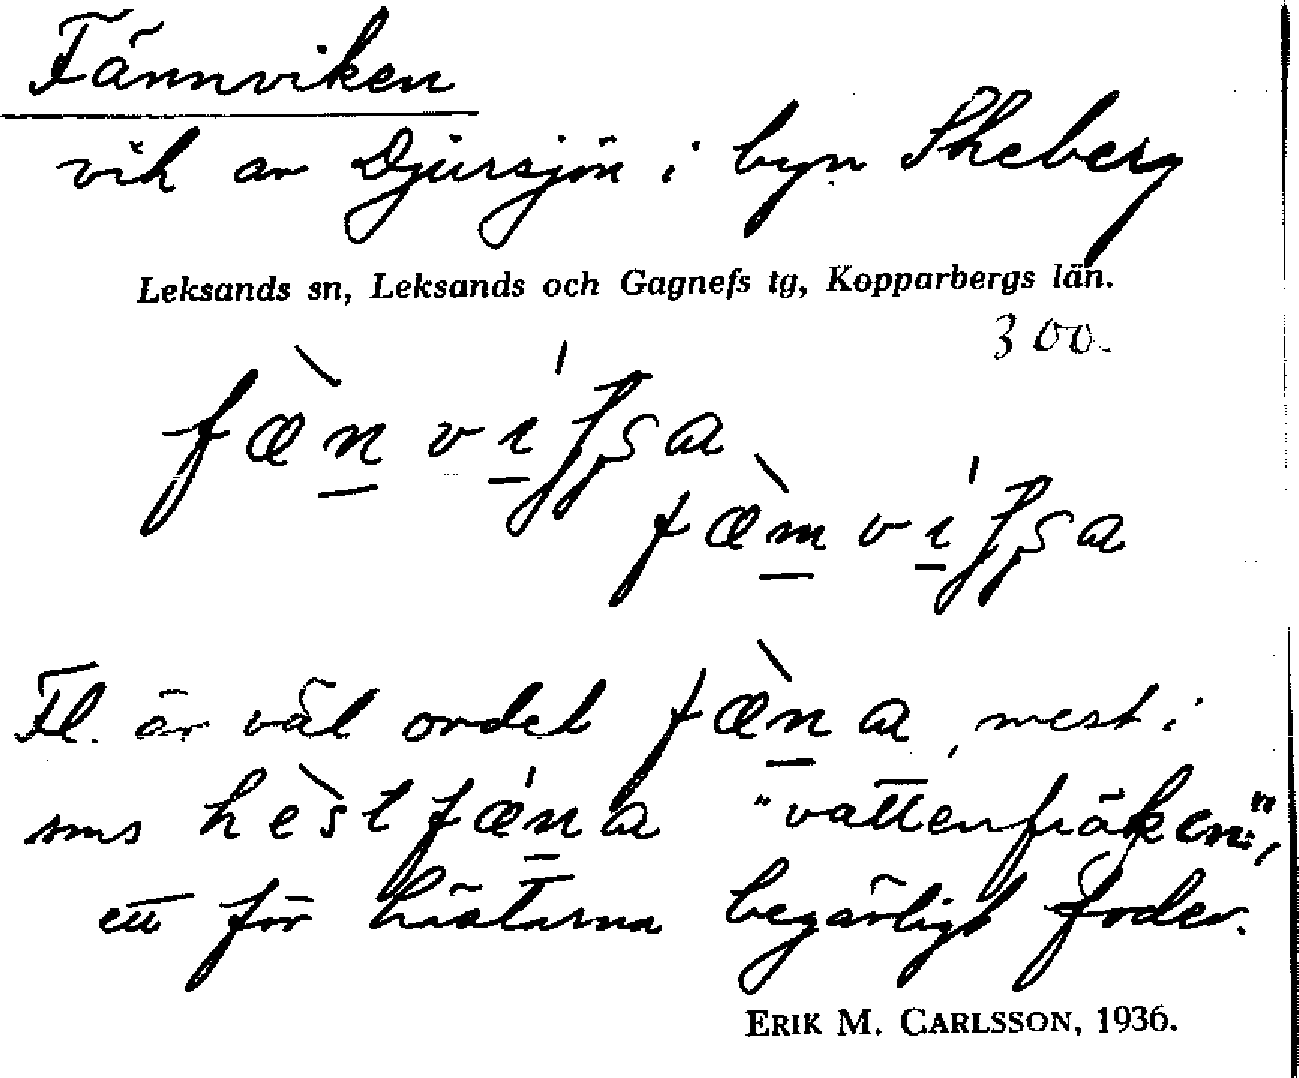 Fännviken
vik av Djursjön i byn Skeberg
Leksands sn, Leksands och Gagnefs tg, Kopparbergs län.
300.
Fl. är väl ordet fæ̀na, mest i
sms hèstfǽna "vattenfräken",
ett för hästarna begärligt foder.
ERIK M. CARLSSON, 1936.